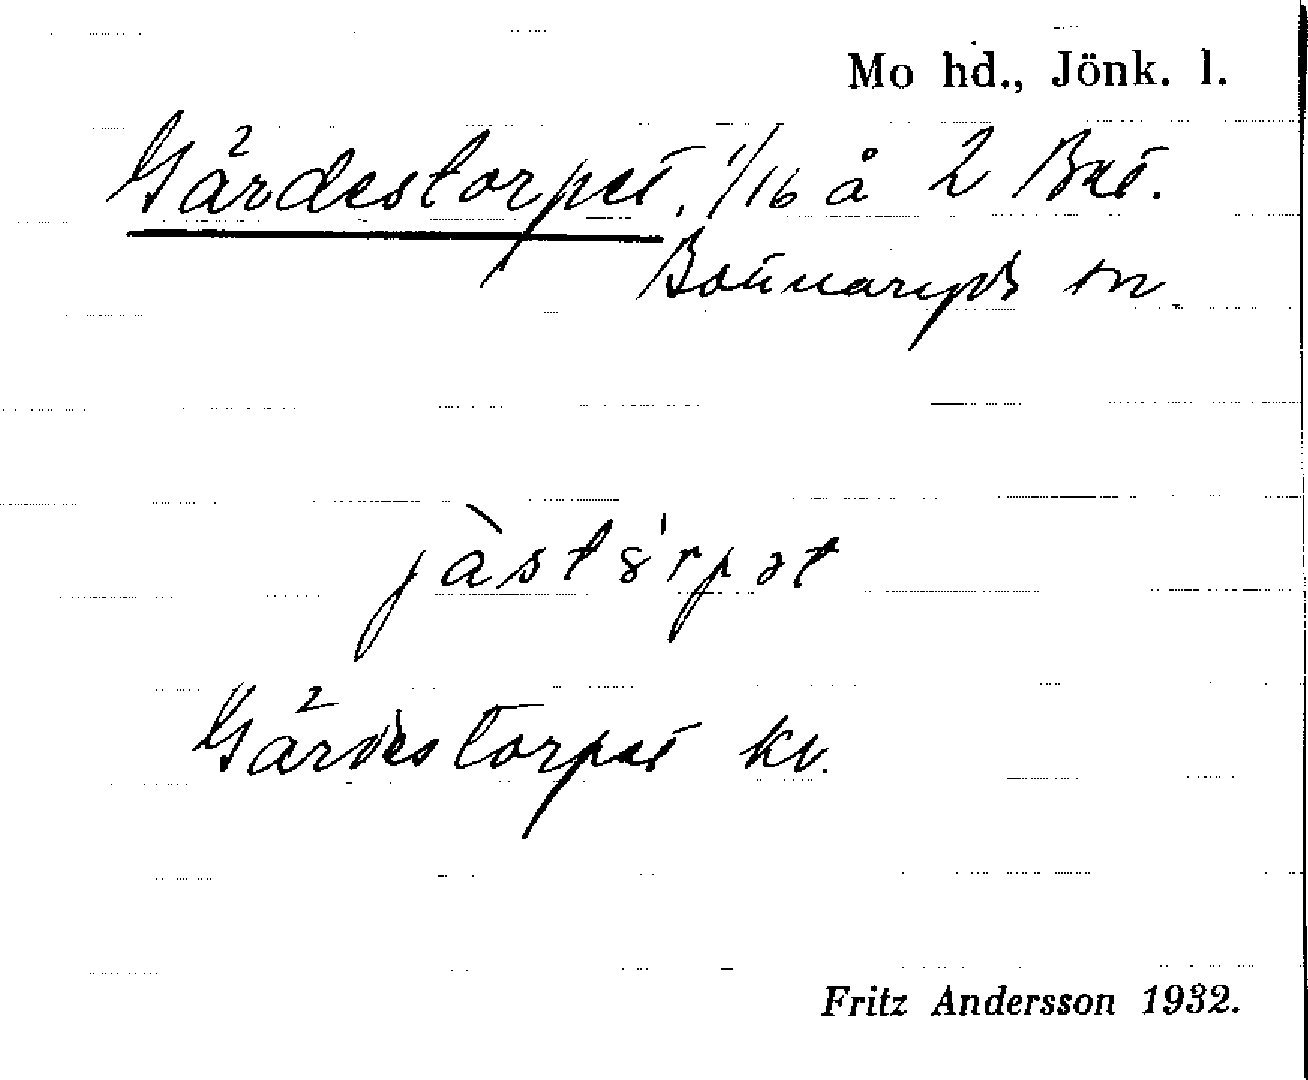 Mo hd., Jönk. l.
Gärdestorpet, 1/16 å 2 Bot.
Bottnaryds sn.
jàstȣ'rpət
Gärdestorpet kv.
Fritz Andersson 1932.